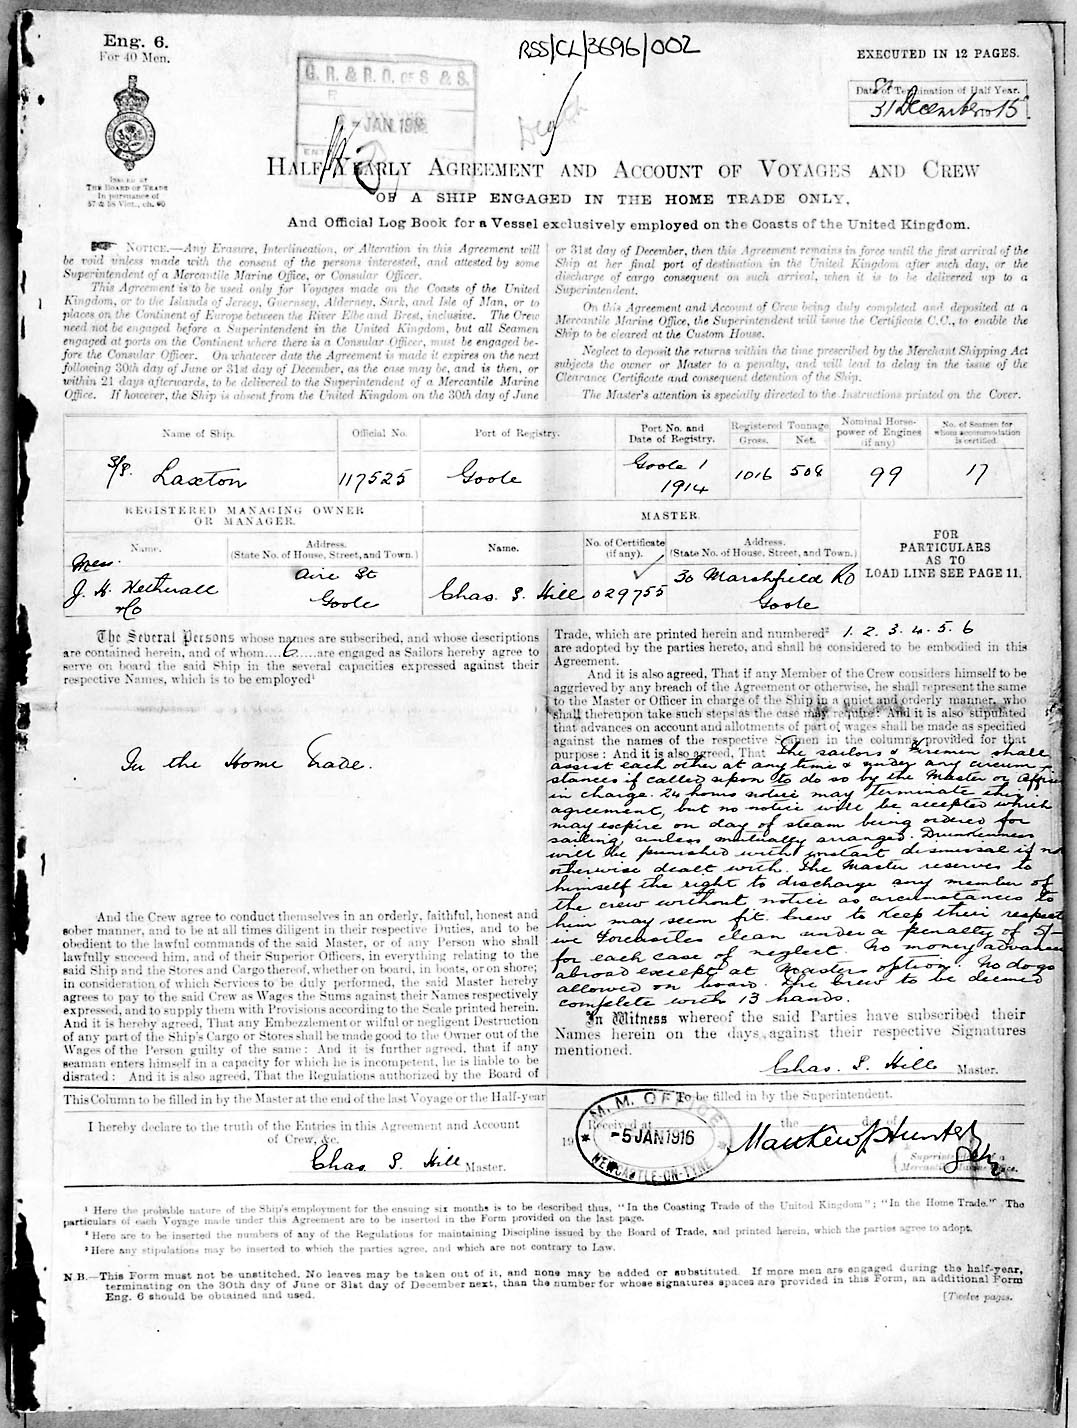 Eng. 6.
For 40 Men.
RSS/CL/3696/002
EXECUTED IN 12 PAGES.
Date of Termination of Half Year.
31 December 15
G. R. & R. O. OF S & S.
JAN 1916
Death
ISSUED BY
THE BOARD OF TRADE
In pursuance of
57 & 58 Vict., ch. 60
HALF YEARLY AGREEMENT AND ACCOUNT OF VOYAGES AND CREW
OF A SHIP ENGAGED IN THE HOME TRADE ONLY,
And Official Log Book for a Vessel exclusively employed on the Coasts of the United Kingdom.
NOTICE.—Any Erasure, Interlineation, or Alteration in this Agreement will
be void unless made with the consent of the persons interested, and attested by some
Superintendent of a Mercantile Marine Office, or Consular Officer.
This Agreement is to be used only for Voyages made on the Coasts of the United
Kingdom, or to the Islands of Jersey, Guernsey, Alderney, Sark, and Isle of Man, or to
places on the Continent of Europe between the River Elbe and Brest, inclusive. The Crew
need not be engaged before a Superintendent in the United Kingdom, but all Seamen
engaged at ports on the Continent where there is a Consular Officer, must be engaged be-
fore the Consular Officer. On whatever date the Agreement is made it expires on the next
following 30th day of June or 31st day of December, as the case may be, and is then, or
within 21 days afterwards, to be delivered to the Superintendent of a Mercantile Marine
Office. If however, the Ship is absent from the United Kingdom on the 30th day of June
or 31st day of December, then this Agreement remains in force until the first arrival of the
Ship at her final port of destination in the United Kingdom after such day, or the
discharge of cargo consequent on such arrival, when it is to be delivered up to a
Superintendent.
On this Agreement and Account of Crew being duly completed and deposited at a
Mercantile Marine Office, the Superintendent will issue the Certificate C.C., to enable the
Ship to be cleared at the Custom House.
Neglect to deposit the returns within the time prescribed by the Merchant Shipping Act
subjects the owner or Master to a penalty, and will lead to delay in the issue of the
Clearance Certificate and consequent detention of the Ship.
The Master's attention is specially directed to the Instructions printed on the Cover.
Name of Ship.
Official No.
Port of Registry.
Port No. and
Date of Registry.
Registered Tonnage
Gross.
Net.
Nominal Horse-
power of Engines
(if any)
No. of Seamen for
whom accommodation
is certified.
S/S. Laxton
117525
Goole
Goole 1
1914
1016
508
99
17
REGISTERED MANAGING OWNER
OR MANAGER.
MASTER.
Name.
Address.
(State No. of House, Street, and Town.)
Name.
No. of Certificate
(if any).
Address.
(State No. of House, Street, and Town.)
FOR
PARTICULARS
AS TO
LOAD LINE SEE PAGE 11.
Mess.
J. H. Wetherall
& Co
Aire St
Goole
Chas. S. Hill
029755
30 Marshfield Rd
Goole
The Several Persons whose names are subscribed, and whose descriptions
are contained herein, and of whom....6....are engaged as Sailors hereby agree to
serve on board the said Ship in the several capacities expressed against their
respective Names, which is to be employed¹
In the Home Trade.
And the Crew agree to conduct themselves in an orderly, faithful, honest and
sober manner, and to be at all times diligent in their respective Duties, and to be
obedient to the lawful commands of the said Master, or of any Person who shall
lawfully succeed him, and of their Superior Officers, in everything relating to the
said Ship and the Stores and Cargo thereof, whether on board, in boats, or on shore;
in consideration of which Services to be duly performed, the said Master hereby
agrees to pay to the said Crew as Wages the Sums against their Names respectively
expressed, and to supply them with Provisions according to the Scale printed herein.
And it is hereby agreed, That any Embezzlement or wilful or negligent Destruction
of any part of the Ship's Cargo or Stores shall be made good to the Owner out of the
Wages of the Person guilty of the same: And it is further agreed, that if any
seaman enters himself in a capacity for which he is incompetent, he is liable to be
disrated: And it is also agreed, That the Regulations authorized by the Board of
Trade, which are printed herein and numbered² 1. 2. 3. 4. 5. 6
are adopted by the parties hereto, and shall be considered to be embodied in this
Agreement.
And it is also agreed, That if any Member of the Crew considers himself to be
aggrieved by any breach of the Agreement or otherwise, he shall represent the same
to the Master or Officer in charge of the Ship in a quiet and orderly manner, who
shall thereupon take such steps as the case may require: And it is also stipulated
that advances on account and allotments of part of wages shall be made as specified
against the names of the respective Seamen in the columns provided for that
purpose: And it is also agreed, That The sailors & Firemen shall
assist each other at any time & under any circum-
stances if called upon to do so by the Master or Officer
in charge. 24 hours notice may terminate this
agreement, but no notice will be accepted which
may expire on day of steam being ordered for
sailing, unless mutually arranged. Drunkenness
will be punished with instant dismissal if not
otherwise dealt with. The Master reserves to
himself the right to discharge any member of
the crew without notice as circumstances to
him may seem fit. Crew to Keep their respect
ive Forecastles clean under a penalty of 5/-
for each case of neglect. No money advanced
abroad except at Masters option. No dogs
allowed on board. The Crew to be deemed
complete with 13 hands.
In Witness whereof the said Parties have subscribed their
Names herein on the days against their respective Signatures
mentioned.
Chas. S. Hill Master.
This Column to be filled in by the Master at the end of the last Voyage or the Half-year
I hereby declare to the truth of the Entries in this Agreement and Account
of Crew, &c.
Chas. S. Hill Master.
To be filled in by the Superintendent.
Received at the day of
19
M. M. OFFICE
-5 JAN 1916
NEWCASTLE-ON-TYNE
Superintendent of a
Mercantile Marine Office.
¹ Here the probable nature of the Ship's employment for the ensuing six months is to be described thus, "In the Coasting Trade of the United Kingdom"; "In the Home Trade." The
particulars of each Voyage made under this Agreement are to be inserted in the Form provided on the last page.
² Here are to be inserted the numbers of any of the Regulations for maintaining Discipline issued by the Board of Trade, and printed herein, which the parties agree to adopt.
³ Here any stipulations may be inserted to which the parties agree, and which are not contrary to Law.
N B.—This Form must not be unstitched. No leaves may be taken out of it, and none may be added or substituted. If more men are engaged during the half-year,
terminating on the 30th day of June or 31st day of December next, than the number for whose signatures spaces are provided in this Form, an additional Form
Eng. 6 should be obtained and used.
[Twelve pages.